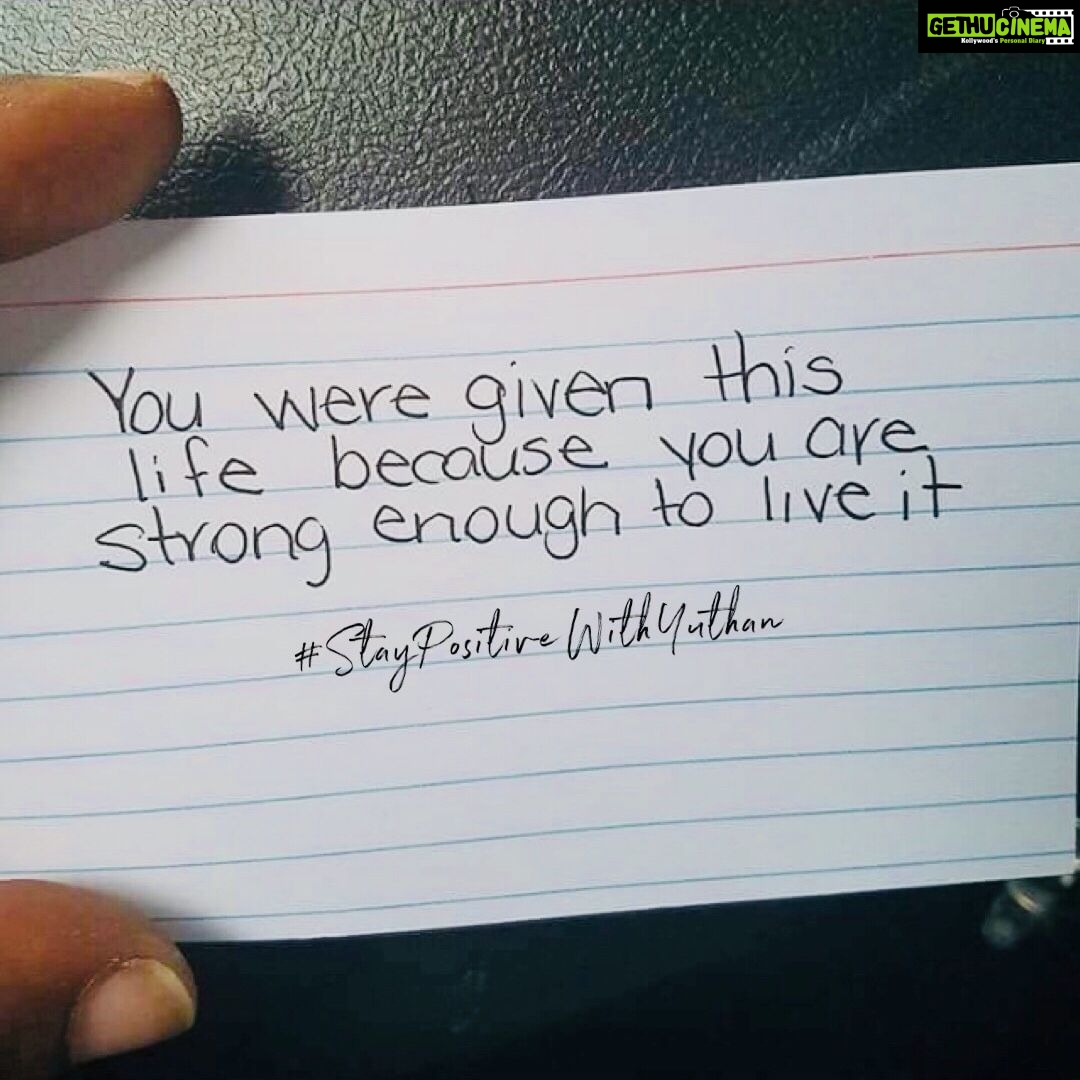 GETHUCINEMA
Kollywood's Personal Diary
You were given this
life because you are
strong enough to live it
#StayPositiveWithYuthan